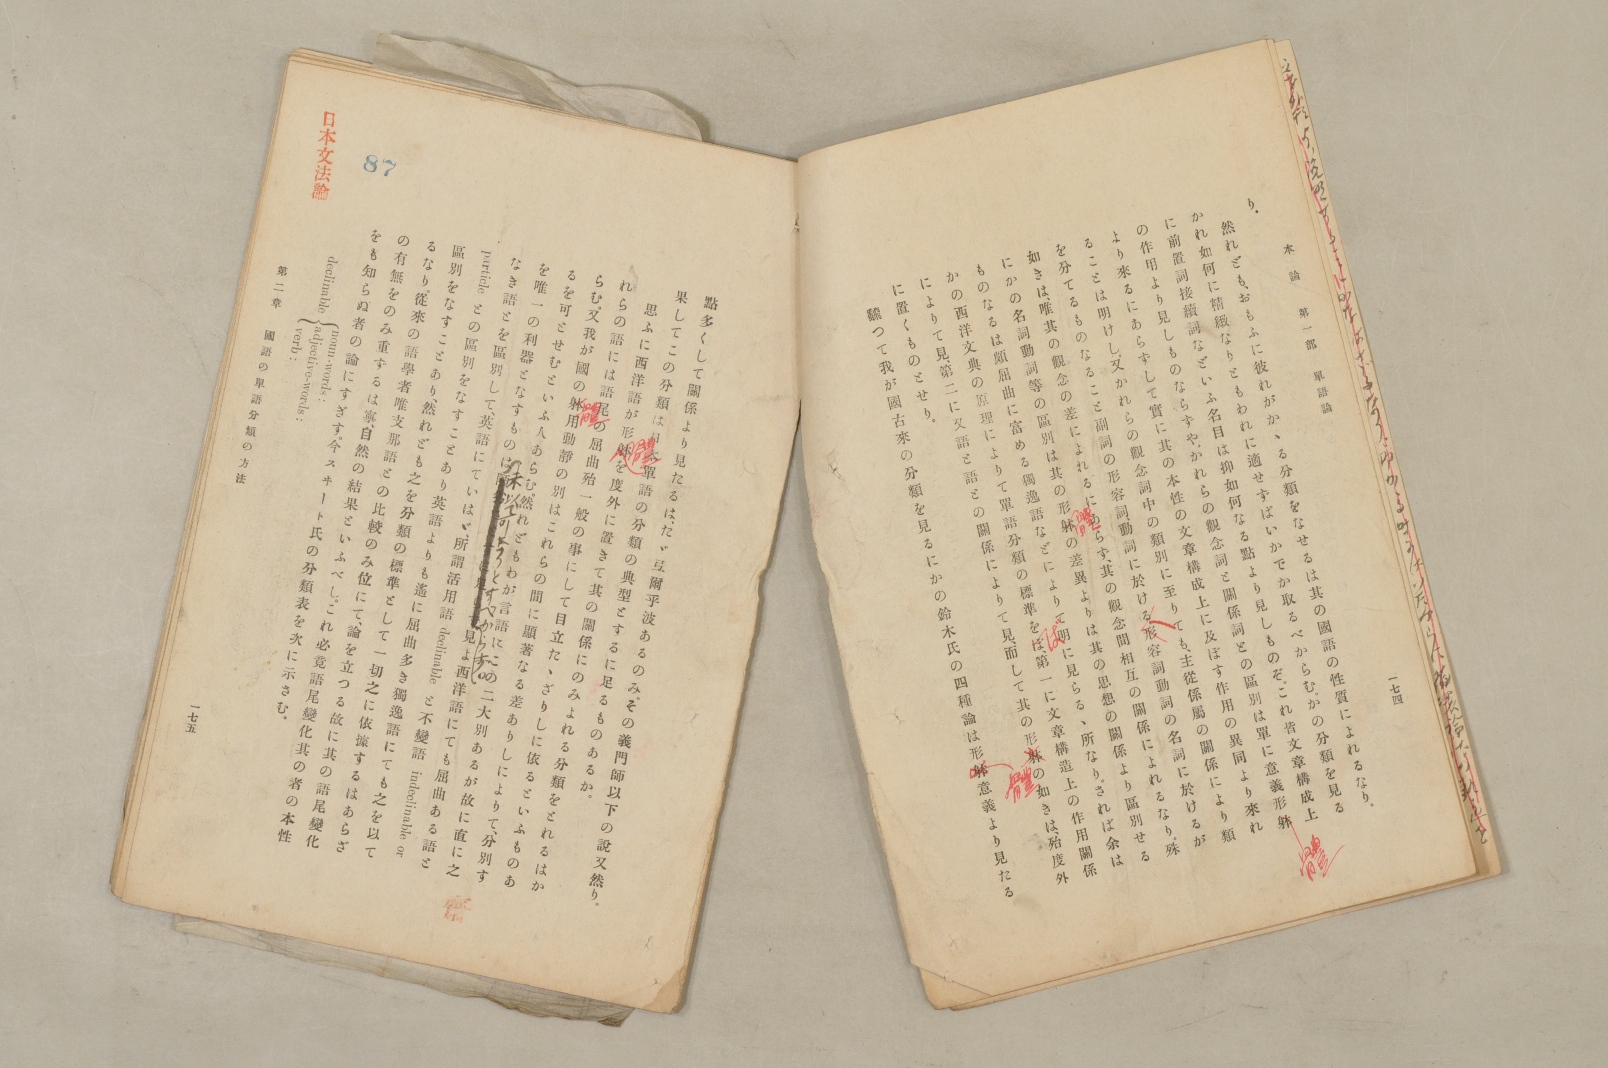 本論　第一部　單語論
一七四
り。
然れども、おもふに彼れがかゝる分類をなせるは其の國語の性質によれるなり。
かれ如何に精緻なりともわれに適せずばいかでか取るべからむ。かの分類を見る
に前置詞接續詞などいふ名目は抑如何なる點より見しものぞ。これ皆文章構成上
の作用より見しものならずや。かれらの觀念詞と關係詞との區別は單に意義形躰
より來るにあらずして實に其の本性の文章構成上に及ぼす作用の異同より來れ
ることは明けし。又かれらの觀念詞中の類別に至りても、主從係屬の關係により類
を分てるものなること副詞の形容詞動詞に於ける形容詞動詞の名詞に於けるが
如きは、唯其の觀念の差によれるにあらず、其の觀念間相互の關係によれるなり。殊
にかの名詞動詞等の區別は其の形躰の差異よりは其の思想の關係より區別せる
ものなるは頗屈曲に富める獨逸語などによりて明に見らるゝ所なり。されば余は
かの西洋文典の原理によりて單語分類の標準をば、第一に文章構造上の作用關係
によりて見、第二に又語と語との關係によりて見、而して其の形躰の如きは、殆度外
に置くものとせり。
飜つて我が國古來の分類を見るにかの鈴木氏の四種論は形躰意義より見たる
體
體
ば
體
點多くして關係より見たるは、たゞ弖爾乎波あるのみ。その義門師以下の說又然り。
果してこの分類は日本單語の分類の典型とするに足るものあるか。
思ふに西洋語が形躰を度外に置きて其の關係にのみよれる分類をとれるはか
れらの語には語尾の屈曲殆一般の事にして目立たゝざりしに依るといふものあ
らむ。又我が國の躰用動靜の別はこれらの間に顯著なる差ありしによりて、分別す
るを可とせむといふ人あらむ。然れどもわが言語にこの二大別あるが故に直に之
を唯一の利器となすものは
見よ西洋語にても屈曲ある語と
なき語とを區別して、英語にていはゞ、所謂活用語 declinable と不變語 indeclinable or
particle との區別をなすことあり英語よりも遙に屈曲多き獨逸語にても之を以て
區別をなすことあり、然れども之を分類の標準として一切之に依據するはあらざ
るなり。從來の語學者唯支那語との比較のみ位にて、論を立つる故に其の語尾變化
の有無をのみ重ずるは寧、自然の結果といふべし。これ必竟語尾變化其の者の本性
をも知らぬ者の論にすぎず。今スヰート氏の分類表を次に示さむ。
declinable
noun-words:
adjective-words:
verb:
體
體
第二章　國語の單語分類の方法
一七五
87
日本文法論